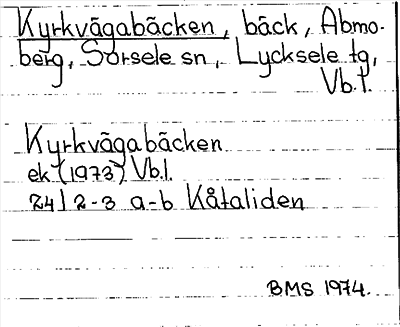 Kyrkvägabäcken, bäck, Abmo-
berg, Sorsele sn, Lycksele tg,
Vb.l.
Kyrkvägabäcken
ek (1973) Vb.l.
24I 2-3 a-b Kåtaliden
BMS 1974.